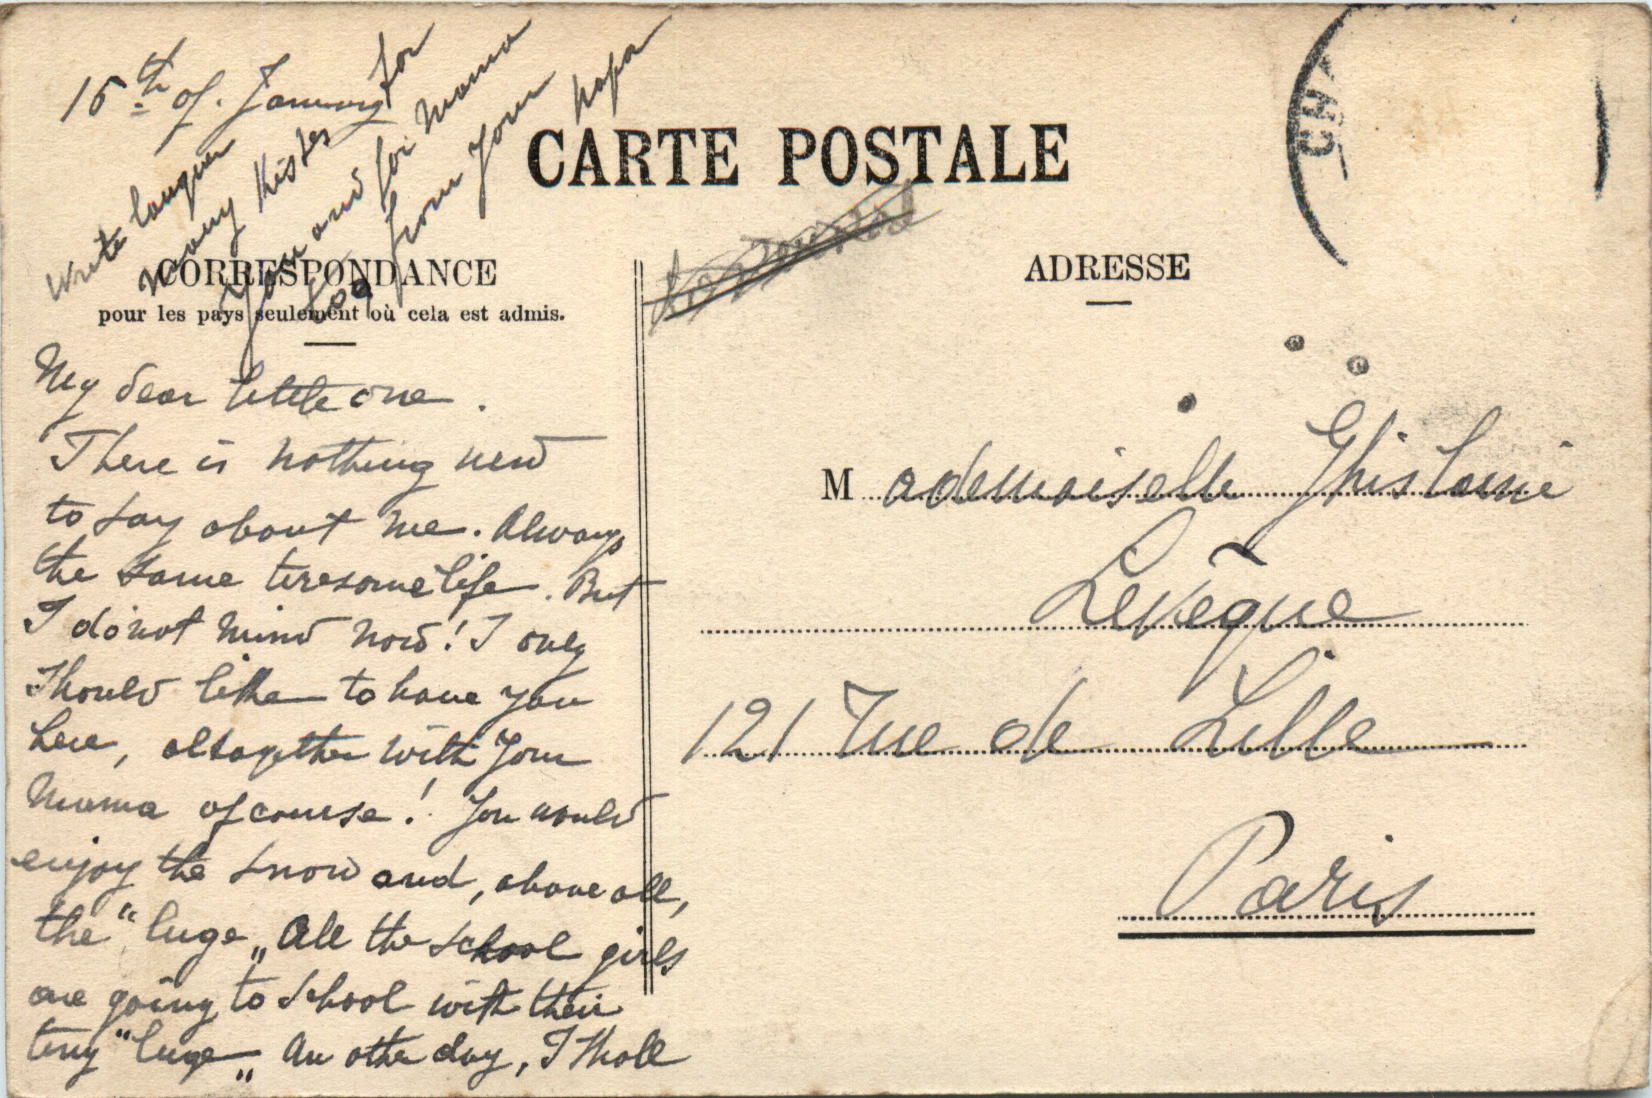 15th of. January
Write longuer
many kisses for
you and for Mama
too from your papa
CARTE POSTALE
CORRESPONDANCE
pour les pays seulement où cela est admis.
ADRESSE
My dear little one.
There is nothing new
to say about me. Always
the same tiresome life. But
I do not mind now! I only
should like to have you
here, altogether with your
Mama of course! You would
enjoy the snow and, above all,
the "luge„ All the school girls
are going to school with their
tiny "luge„ An other day, I shall
Mademoiselle Ghislaine
Levêque
121 Rue de Lille
Paris